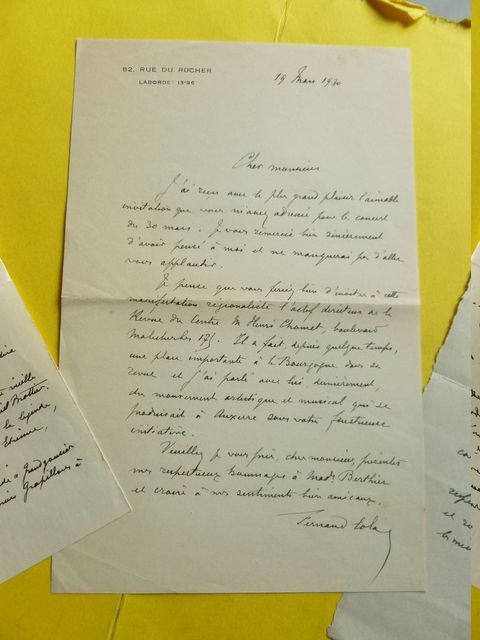 82, RUE DU ROCHER
LABORDE 13-96
19 Mars 1930
Cher monsieur
J'ai reçu avec le plus grand plaisir l'aimable
invitation que vous m'avez adressée pour le concert
du 30 mars. Je vous remercie bien sincèrement
d'avoir pensé à moi et ne manquerai pas d'aller
vous applaudir.
Je pense que vous feriez bien d'inviter à cette
manifestation régionaliste l'actif directeur de la
Revue du Centre M. Henri Chomet, boulevard
Malesherbes 175. Il a fait, depuis quelque temps,
une place importante à la Bourgogne dans sa
revue et j'ai parlé avec lui dernièrement
du mouvement artistique et musical qui se
produisait à Auxerre sous votre fructueuse
initiative.
Veuillez je vous prie, cher monsieur, présenter
mes respectueux hommages à Made Berthier
et croire à mes sentiments bien amicaux.
Fernand
mille
la légende
Etienne,
à
et